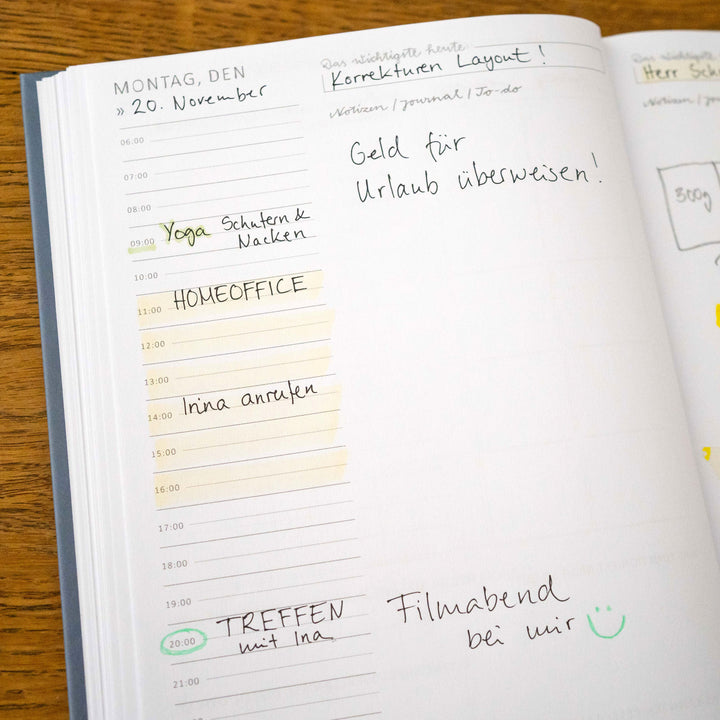 MONTAG, DEN
» 20. November
Das wichtigste heute:
Korrekturen Layout!
Notizen / Journal / To-do
Geld für
Urlaub überweisen!
06:00
07:00
08:00
09:00 Yoga Schultern &
Nacken
10:00
11:00 HOMEOFFICE
12:00
13:00
14:00 Irina anrufen
15:00
16:00
17:00
18:00
19:00
20:00 TREFFEN
mit Ina
Filmabend
bei mir
21:00
Das wichtigste
Herr
Notizen /
300g